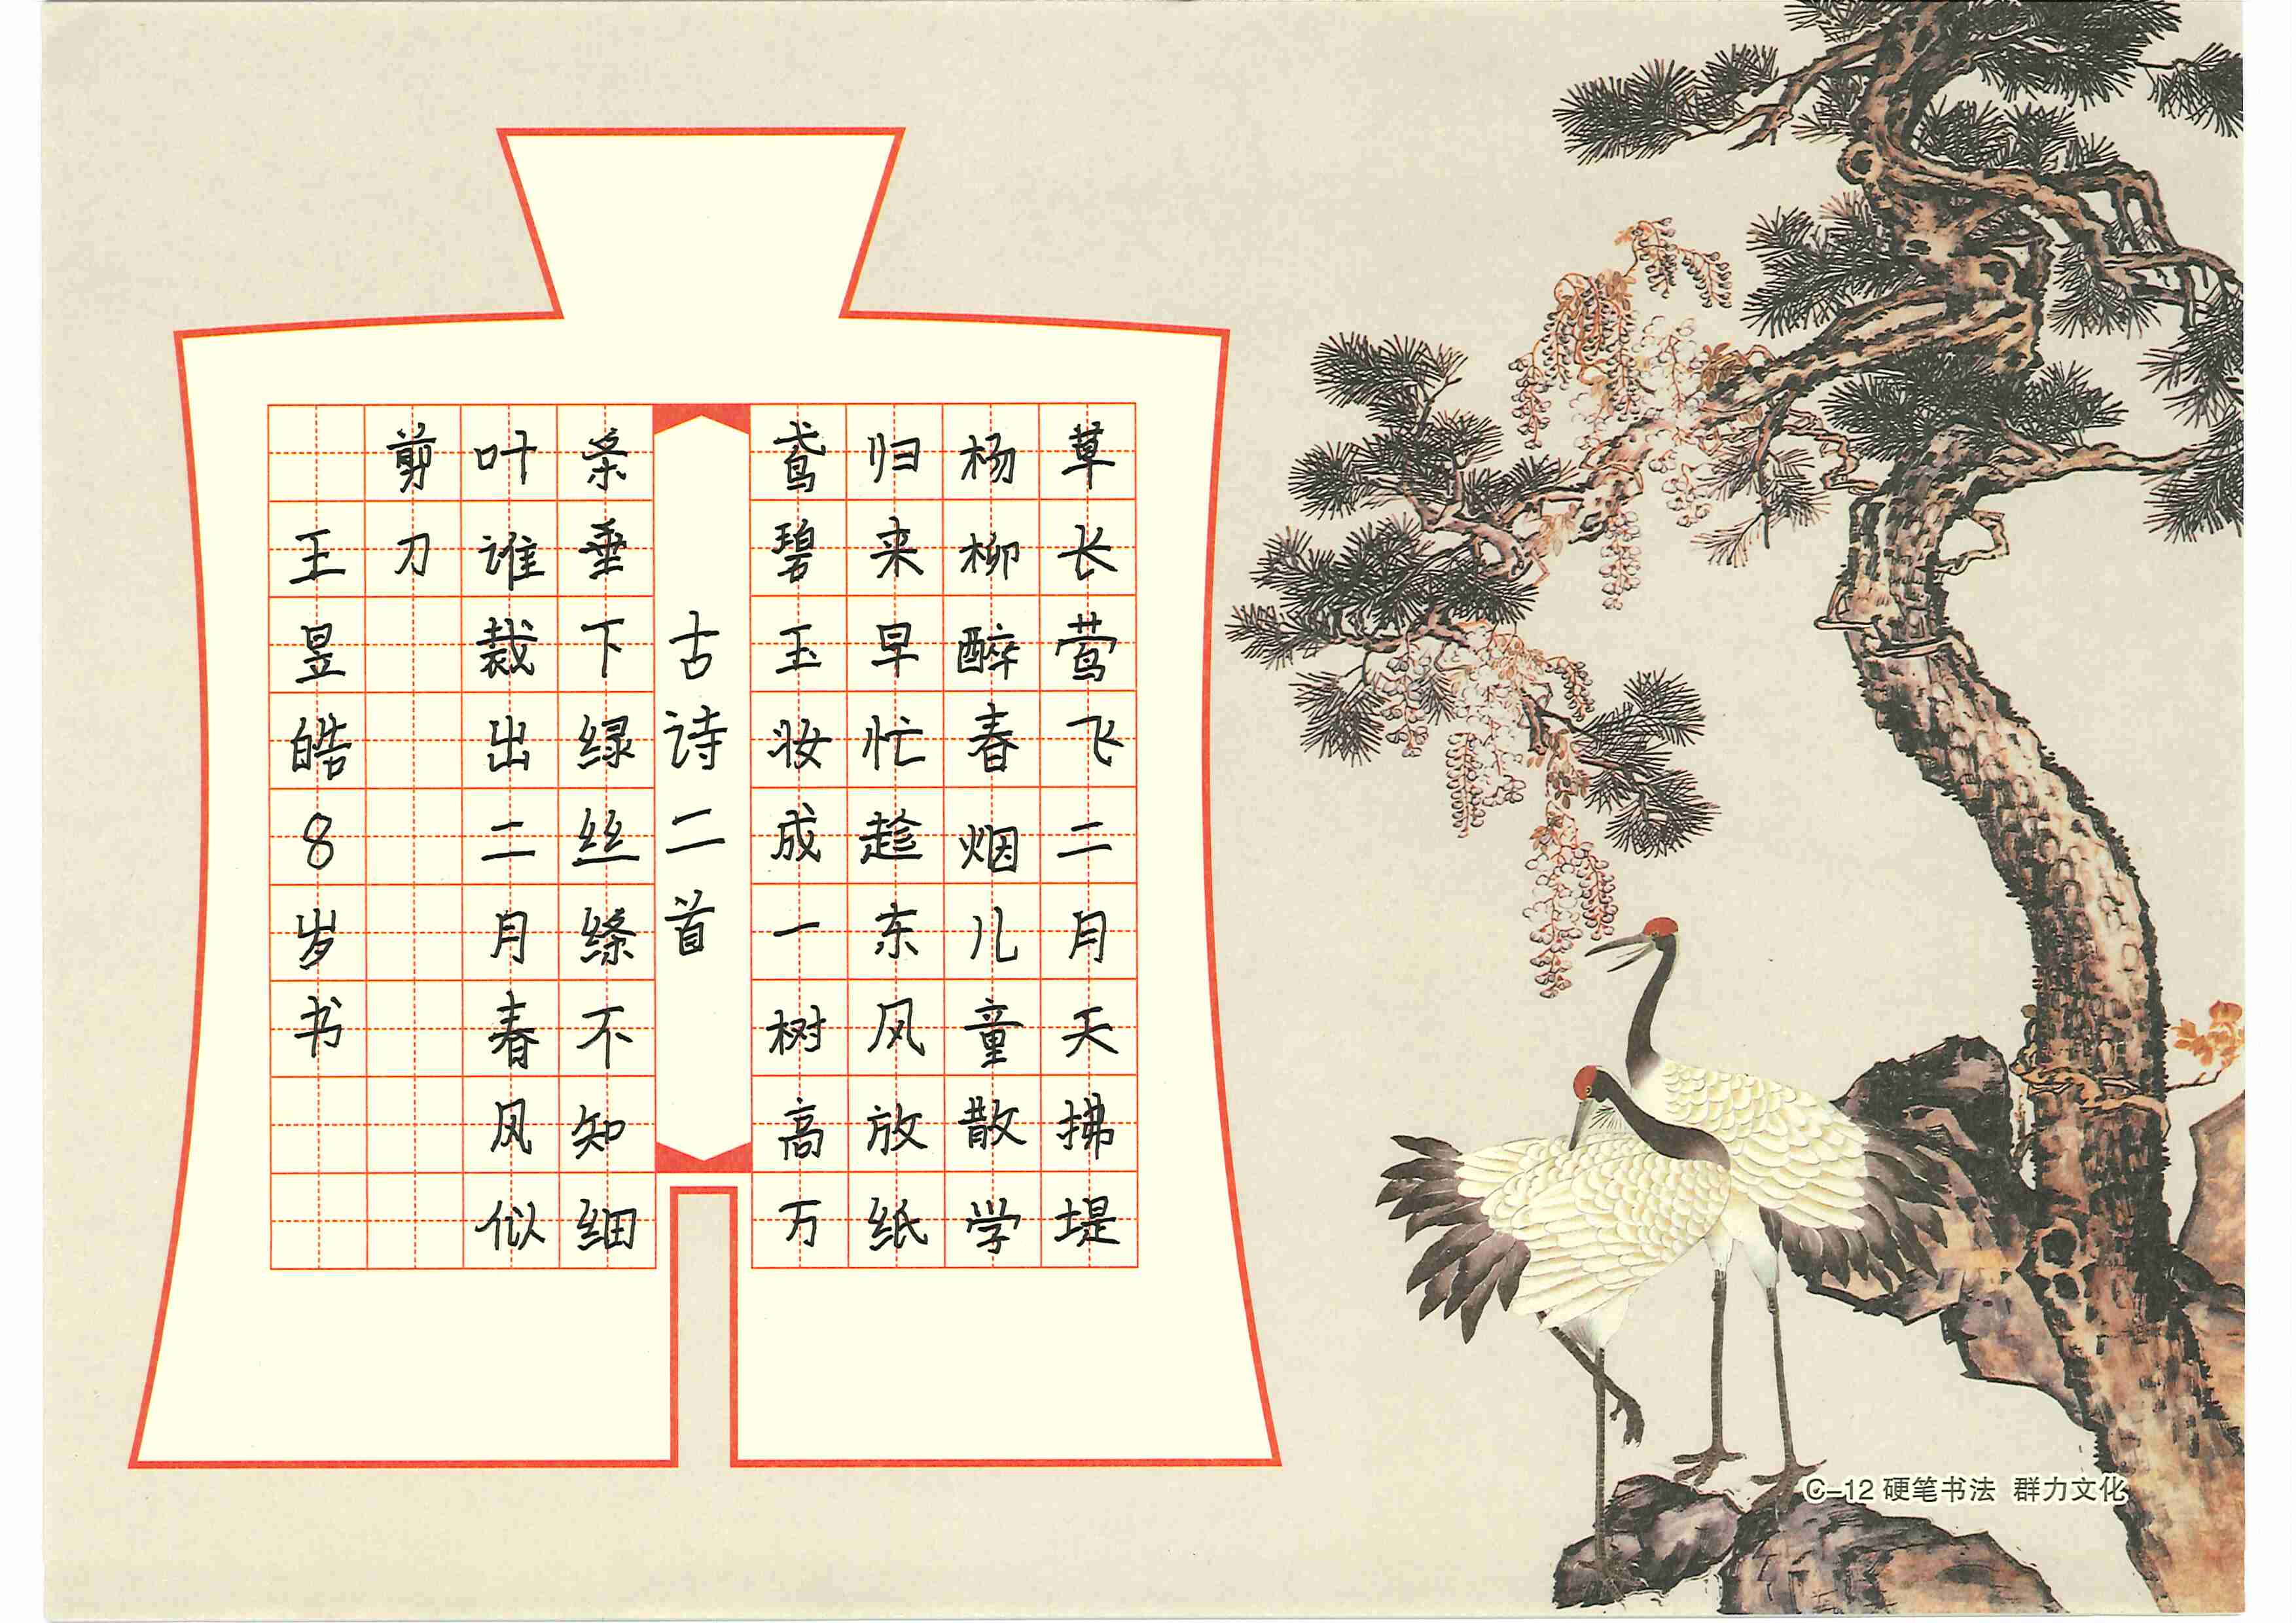 草长莺飞二月天拂堤
杨柳醉春烟儿童散学
归来早忙趁东风放纸
鸢碧玉妆成一树高万
古诗二首
条垂下绿丝绦不知细
叶谁裁出二月春风似
剪刀
王昱皓8岁书
C-12 硬笔书法 群力文化